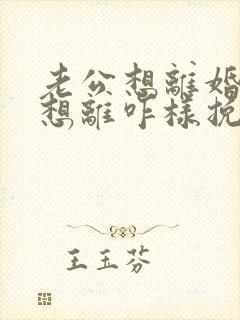 老公想離婚
想離咋樣挽
王玉芬